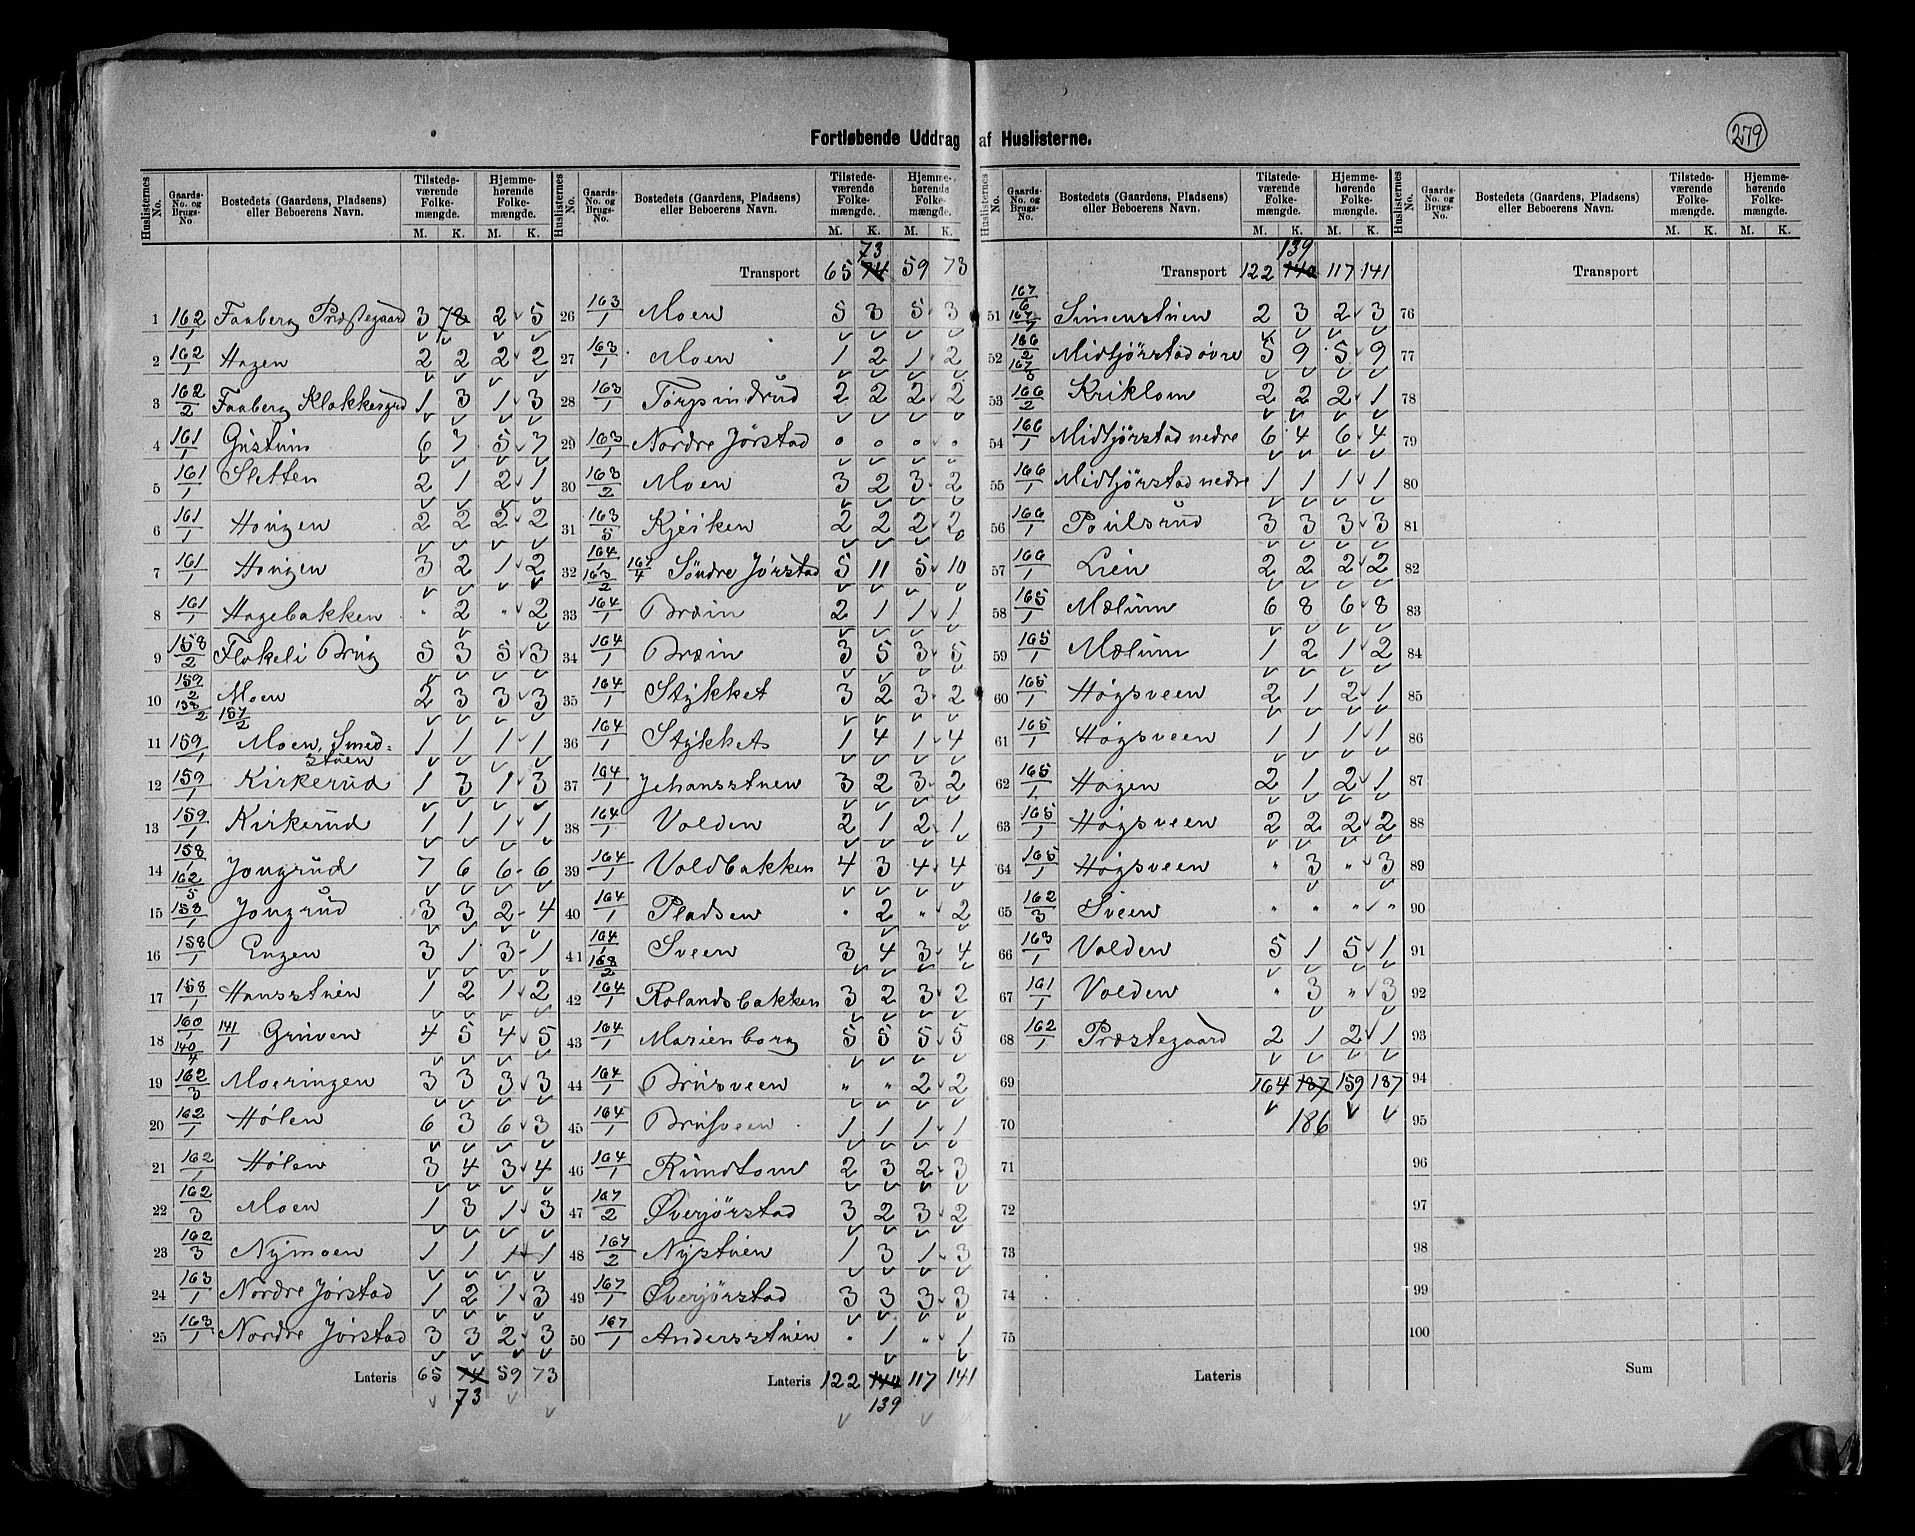 Fortløbende Uddrag af Huslisterne.
279
Huslisternes No. | Gaards-No. og Brugs-No | Bostedets (Gaardens, Pladsens) eller Beboerens Navn. | Tilstedeværende Folkemængde. M. K. | Hjemmehørende Folkemængde. M. K.
1 162/1 Faaberg Præstegaard 3 7 2 5
2 162/1 Hagen 2 2 2 2
3 162/2 Faaberg Klokkergrd 1 3 1 3
4 161/1 Gustum 6 7 5 7
5 161/1 Sletten 2 1 2 1
6 161/1 Haugen 2 2 2 2
7 161/1 Haugen 3 2 1 2
8 161/1 Hagebakken " 2 " 2
9 158/2 Flakeli Brug 5 3 5 3
10 159/2 138/2 157/2 Moen 2 3 3 3
11 159/1 Moen, Smedstuen 1 1 1 1
12 159/1 Kirkerud 1 3 1 3
13 159/1 Kirkerud 1 1 1 1
14 158/1 162/5 Jongrud 7 6 6 6
15 158/1 Jongrud 3 3 2 4
16 158/1 Engen 3 1 3 1
17 158/1 Hansstuen 1 2 1 2
18 160/1 140/4 141/1 Gruven 4 5 4 5
19 162/3 Moeringen 3 3 3 3
20 162/1 Hølen 6 3 6 3
21 162/1 Hølen 3 4 3 4
22 162/3 Moen 1 3 1 3
23 162/3 Nymoen 1 1 1 1
24 163/1 Nordre Jørstad 1 2 1 3
25 163/1 Nordre Jørstad 3 3 2 3
Lateris 65 74 59 73
73
Huslisternes No. | Gaards-No. og Brugs-No. | Bostedets (Gaardens, Pladsens) eller Beboerens Navn. | Tilstedeværende Folkemængde. M. K. | Hjemmehørende Folkemængde. M. K.
73
Transport 65 74 59 73
26 163/1 Moen 5 3 5 3
27 163/1 Moen 1 2 1 2
28 163/1 Torpsindrud 2 2 2 2
29 163/1 Nordre Jørstad " " " "
30 163/2 Moen 3 2 3 2
31 163/5 Kjeiken 2 2 2 2
32 164/1 163/2 167/4 Søndre Jørstad 5 11 5 10
33 164/1 Bræin 2 1 1 1
34 164/1 Bræin 3 5 3 5
35 164/1 Stykket 3 2 3 2
36 164/1 Stykket 1 4 1 4
37 164/1 Johansstuen 3 2 3 2
38 164/1 Volden 2 1 2 1
39 164/1 Voldbakken 4 3 4 4
40 164/1 Pladsen " 2 " 2
41 164/1 168/2 Sveen 3 4 3 4
42 164/1 Rolandsbakken 3 2 3 2
43 164/1 Marienborg 5 5 5 5
44 164/1 Brusveen " " 2 2
45 164/1 Brusveen 1 1 1 1
46 164/1 Rundtom 2 3 2 3
47 167/2 Øverjørstad 3 2 3 2
48 167/2 Nystuen 1 3 1 3
49 167/1 Øverjørstad 3 3 3 3
50 167/1 Andersstuen " 1 " 1
Lateris 122 140 117 141
139
Huslisternes No. | Gaards-No. og Brugs-No. | Bostedets (Gaardens, Pladsens) eller Beboerens Navn. | Tilstedeværende Folkemængde. M. K. | Hjemmehørende Folkemængde. M. K.
139
Transport 122 140 117 141
51 167/6 167/7 Simenstuen 2 3 2 3
52 166/2 167/8 Midtjørstad øvre 5 9 5 9
53 166/2 Kriklom 2 2 2 1
54 166/1 Midtjørstad nedre 6 4 6 4
55 166/1 Midtjørstad nedre 1 1 1 1
56 166/1 Poulsrud 3 3 3 3
57 166/1 Lien 2 2 2 2
58 165/1 Mælum 6 8 6 8
59 165/1 Mælum 1 2 1 2
60 165/1 Høgsveen 2 1 2 1
61 165/1 Høgsveen 1 1 1 1
62 165/1 Haugen 2 1 2 1
63 165/1 Høgsveen 2 2 2 2
64 165/1 Høgsveen " 3 " 3
65 162/3 Sveen " " " "
66 163/1 Volden 5 1 5 1
67 161/1 Volden " 3 " 3
68 162/1 Præstegaard 2 1 2 1
69 164 187 159 187
70 186
71
72
73
74
75
Lateris
Huslisternes No. | Gaards-No. og Brugs-No. | Bostedets (Gaardens, Pladsens) eller Beboerens Navn. | Tilstedeværende Folkemængde. M. K. | Hjemmehørende Folkemængde. M. K.
Transport
76
77
78
79
80
81
82
83
84
85
86
87
88
89
90
91
92
93
94
95
96
97
98
99
100
Sum